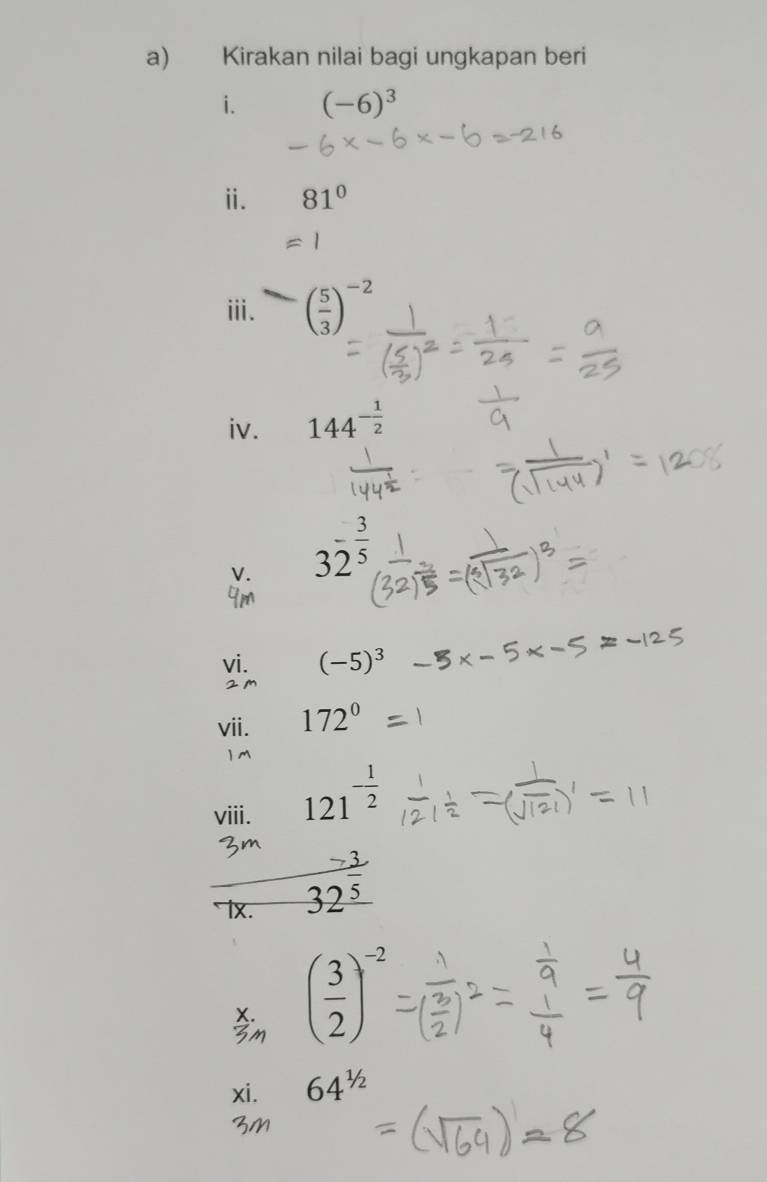 a) Kirakan nilai bagi ungkapan beri
i. (−6)³
−6 × −6 × −6 = −216
ii. 81⁰
= 1
iii. (5/3)⁻²
= 1/(5/3)² = 1/25 / 1/9 = 9/25
iv. 144^(−1/2)
1/144^(1/2) = 1/(√144)¹ = 120
v. 32^(−3/5) 1/(32)^(3/5) = 1/(⁵√32)³ =
4m
vi. (−5)³ −5 × −5 × −5 = −125
2m
vii. 172⁰ = 1
1m
viii. 121^(−1/2) 1/121^(1/2) = 1/(√121)¹ = 11
3m
ix. 32^(−3/5)
x. (3/2)⁻² = 1/(3/2)² = 1/9 / 1/4 = 4/9
3m
xi. 64^½
3m = (√64)¹ = 8